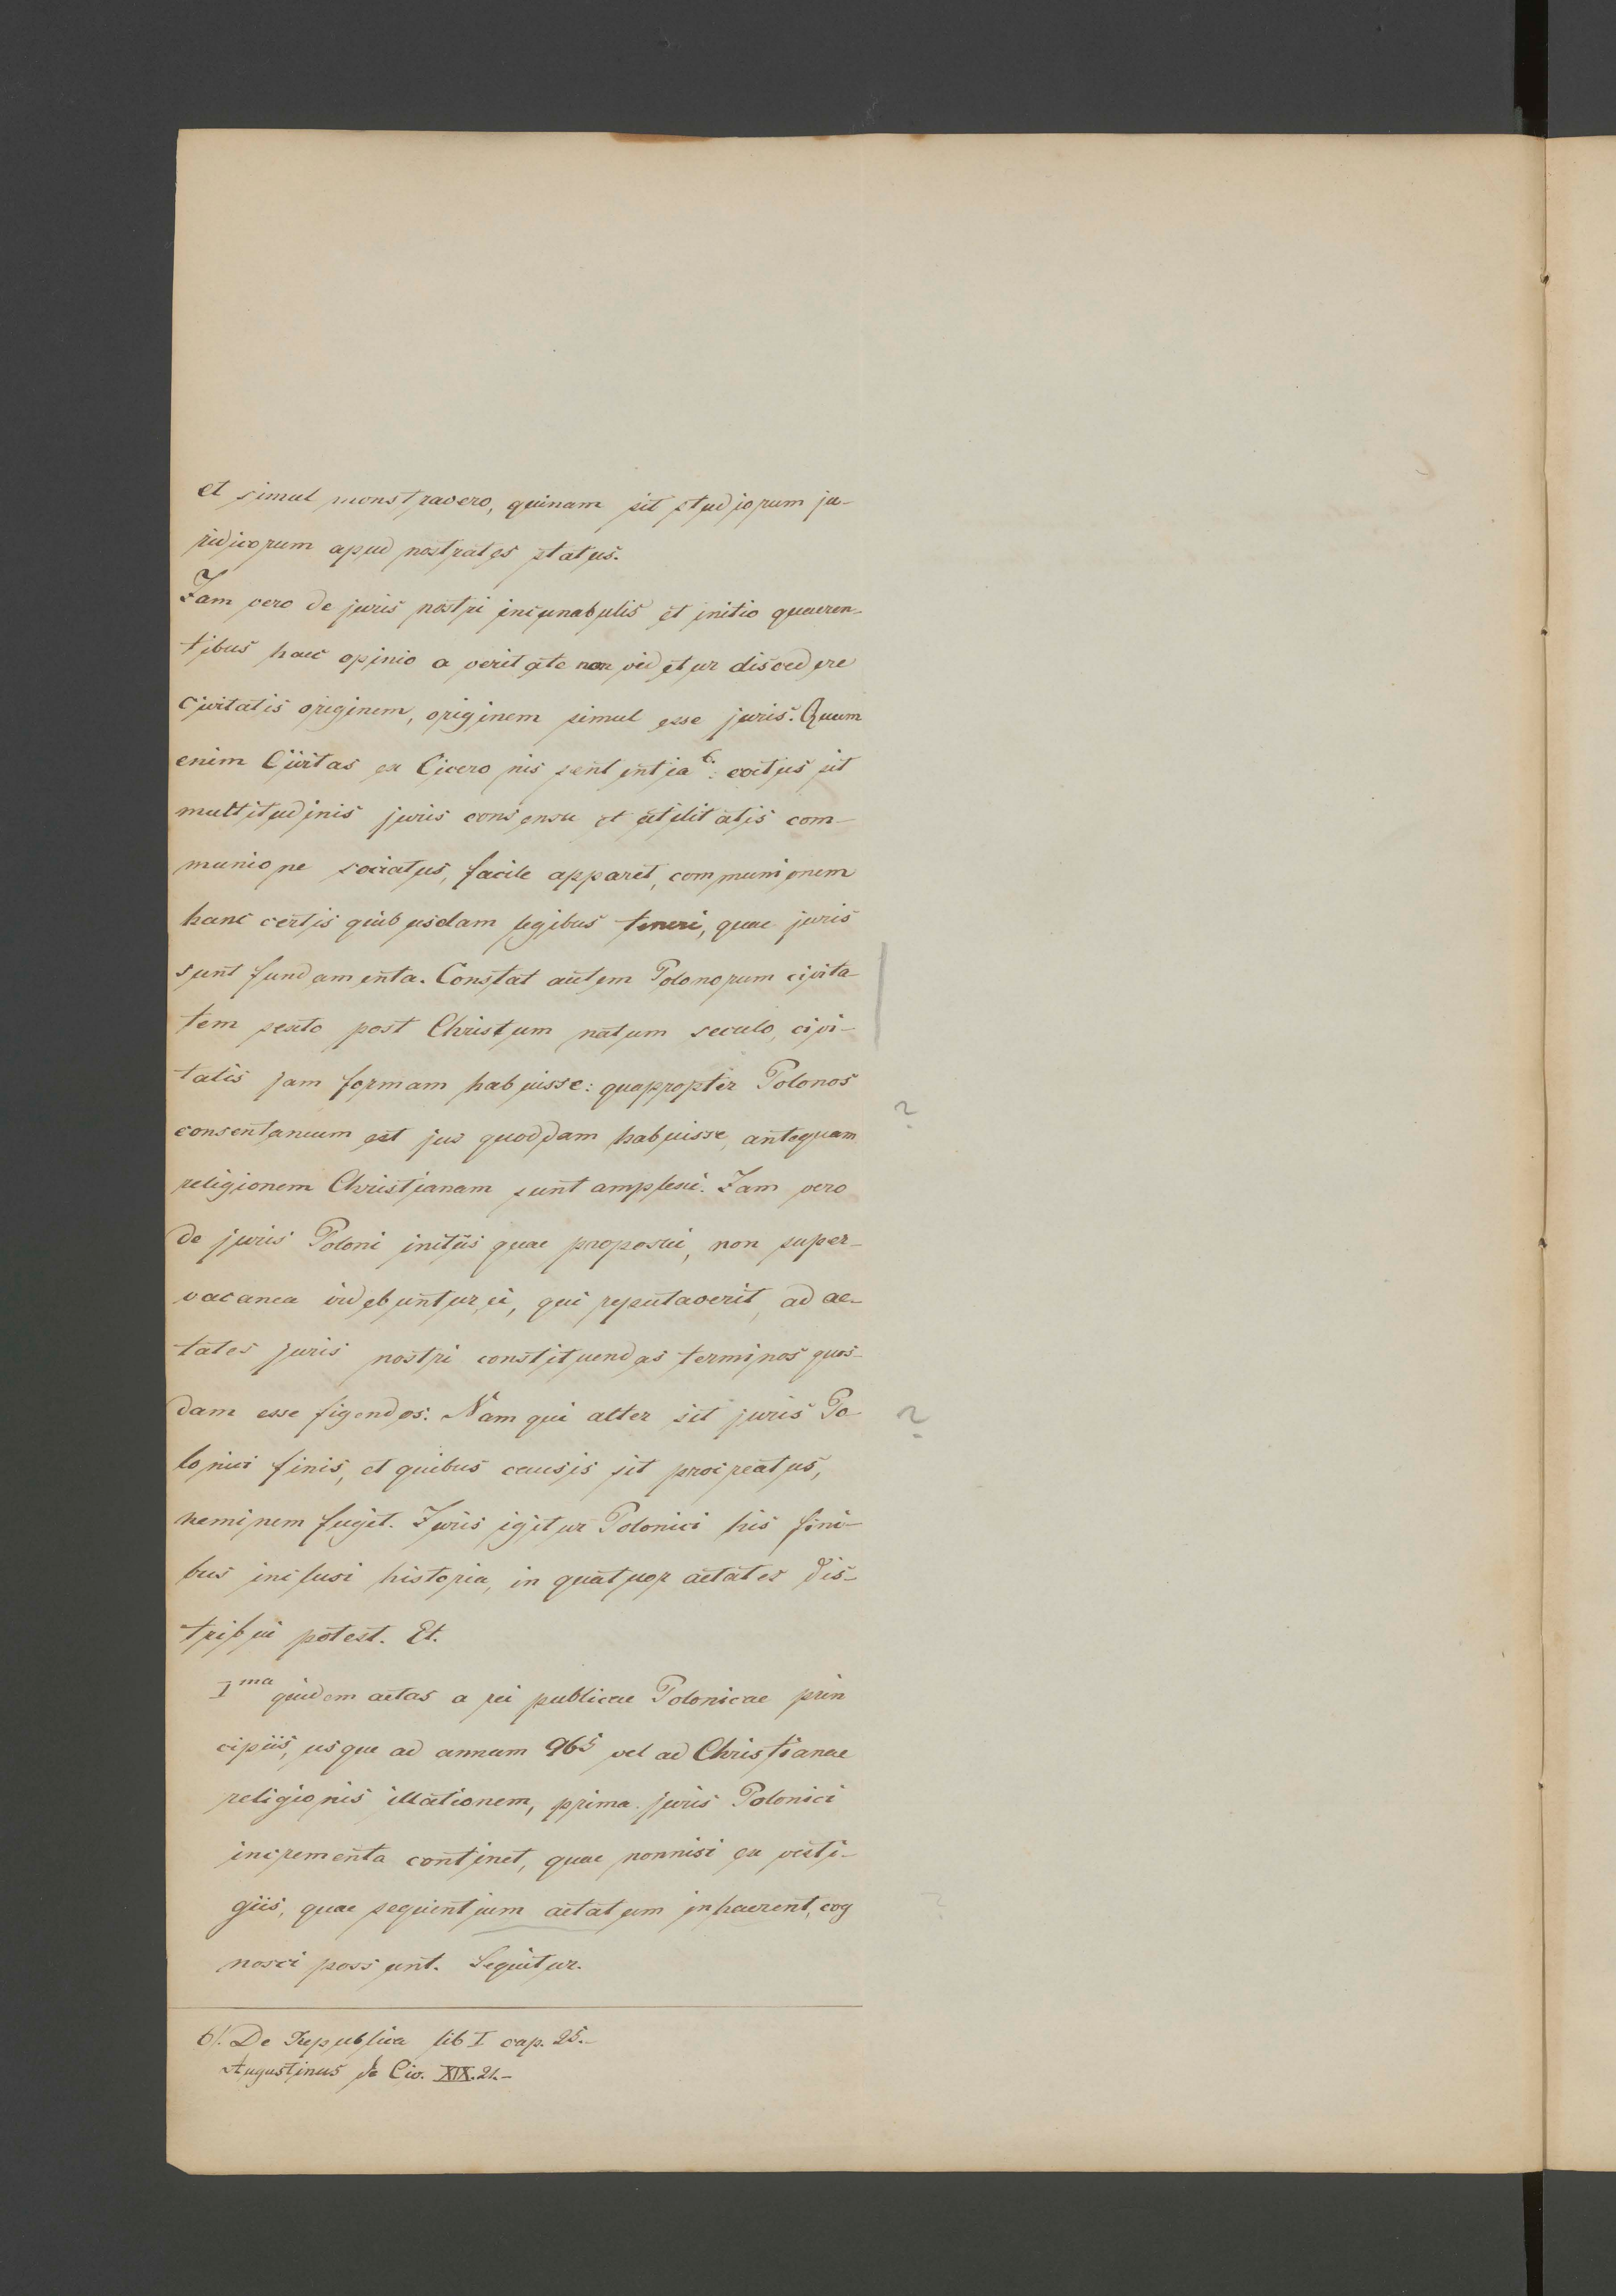 et simul monstravero, quinam sit studiorum ju-
ridicorum apud nostrates status.
Jam vero de juris nostri incunabulis et initio quaeren-
tibus haec opinio a veritate non videtur discedere
civitatis originem, originem simul esse juris. Quum
enim Civitas ex Ciceronis sententia 6. coetus sit
multitudinis juris consensu et utilitatis com-
munione sociatus, facile apparet, communionem
hanc certis quibusdam legibus teneri, quae juris
sunt fundamenta. Constat autem Polonorum civita
tem sexto post Christum natum seculo, civi-
tatis jam formam habuisse: quapropter Polonos
?
consentaneum est jus quoddam habuisse, antequam
religionem Christianam sunt amplexi. Jam vero
de juris Poloni initiis quae proposui, non super-
vacanea videbuntur ei, qui reputaverit, ad ae-
tates juris nostri constituendas terminos quos-
dam esse figendos. Nam qui alter sit juris Po
?
lonici finis, et quibus causis sit procreatus,
neminem fugit. Juris igitur Polonici his fini-
bus inclusi historia, in quatuor aetates dis-
tribui potest. Et.
I ma quidem aetas a rei publicae Polonicae prin
cipiis, usque ad annum 965 vel ad Christianae
religionis illationem, prima juris Polonici
incrementa continet, quae nonnisi ex vesti-
giis, quae sequentium aetatum inhaerent, cog
nosci possunt. Sequitur.
6/. De Republica lib I cap. 25.-
Augustinus de Civ. XIX. 21.-